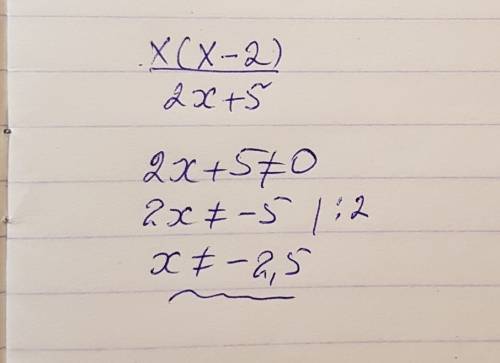 x(x-2)
2x+5
2x+5≠0
2x≠-5 |:2
x≠-2,5